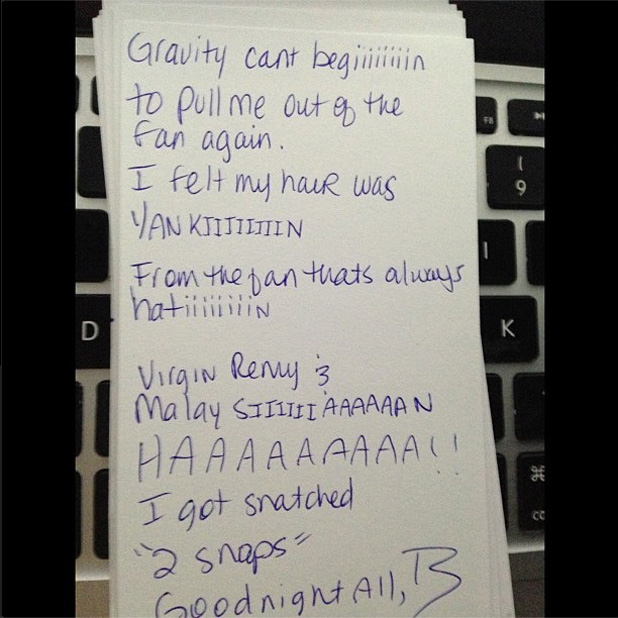 Gravity cant begiiiiiiiin
to pull me out of the
fan again.
I felt my hair was
YANKIIIIIIIIN
From the fan thats always
hatiiiiiiiiiN
Virgin Remy &
Malay SIIIIIIAAAAAAN
HAAAAAAAAA!!
I got snatched
"2 snaps"
Goodnight All, B
F8
(
9
I
D
K
⌘